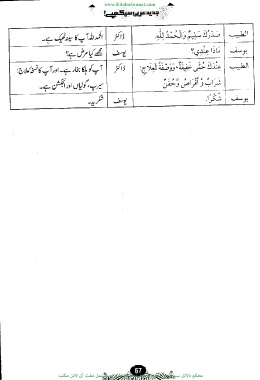 www.KitaboSunnat.com
جدید عربی سیکھیے!
الطبيب صَدْرُكَ سَلِيمٌ وَالْحَمْدُ لِلّهِ. ڈاکٹر الحمدللہ آپ کا سینہ ٹھیک ہے۔
يوسف مَاذَا عِنْدِي؟ یوسف مجھے کیا مرض ہے؟
الطبيب عِنْدَكَ حُمَّى خَفِيفَةٌ، وَوَصْفَةُ لِعِلَاجٍ: ڈاکٹر آپ کو ہلکا بخار ہے۔ اور آپ کا نسخہ علاج:
شَرَابٌ وَ أَقْرَاصٌ وَّ حُقَنٌ سیرپ، گولیاں اور انجکشن ہے۔
يوسف شُكْرًا. یوسف شکریہ۔
67
محکم دلائل سے مفت آن لائن مکتبہ